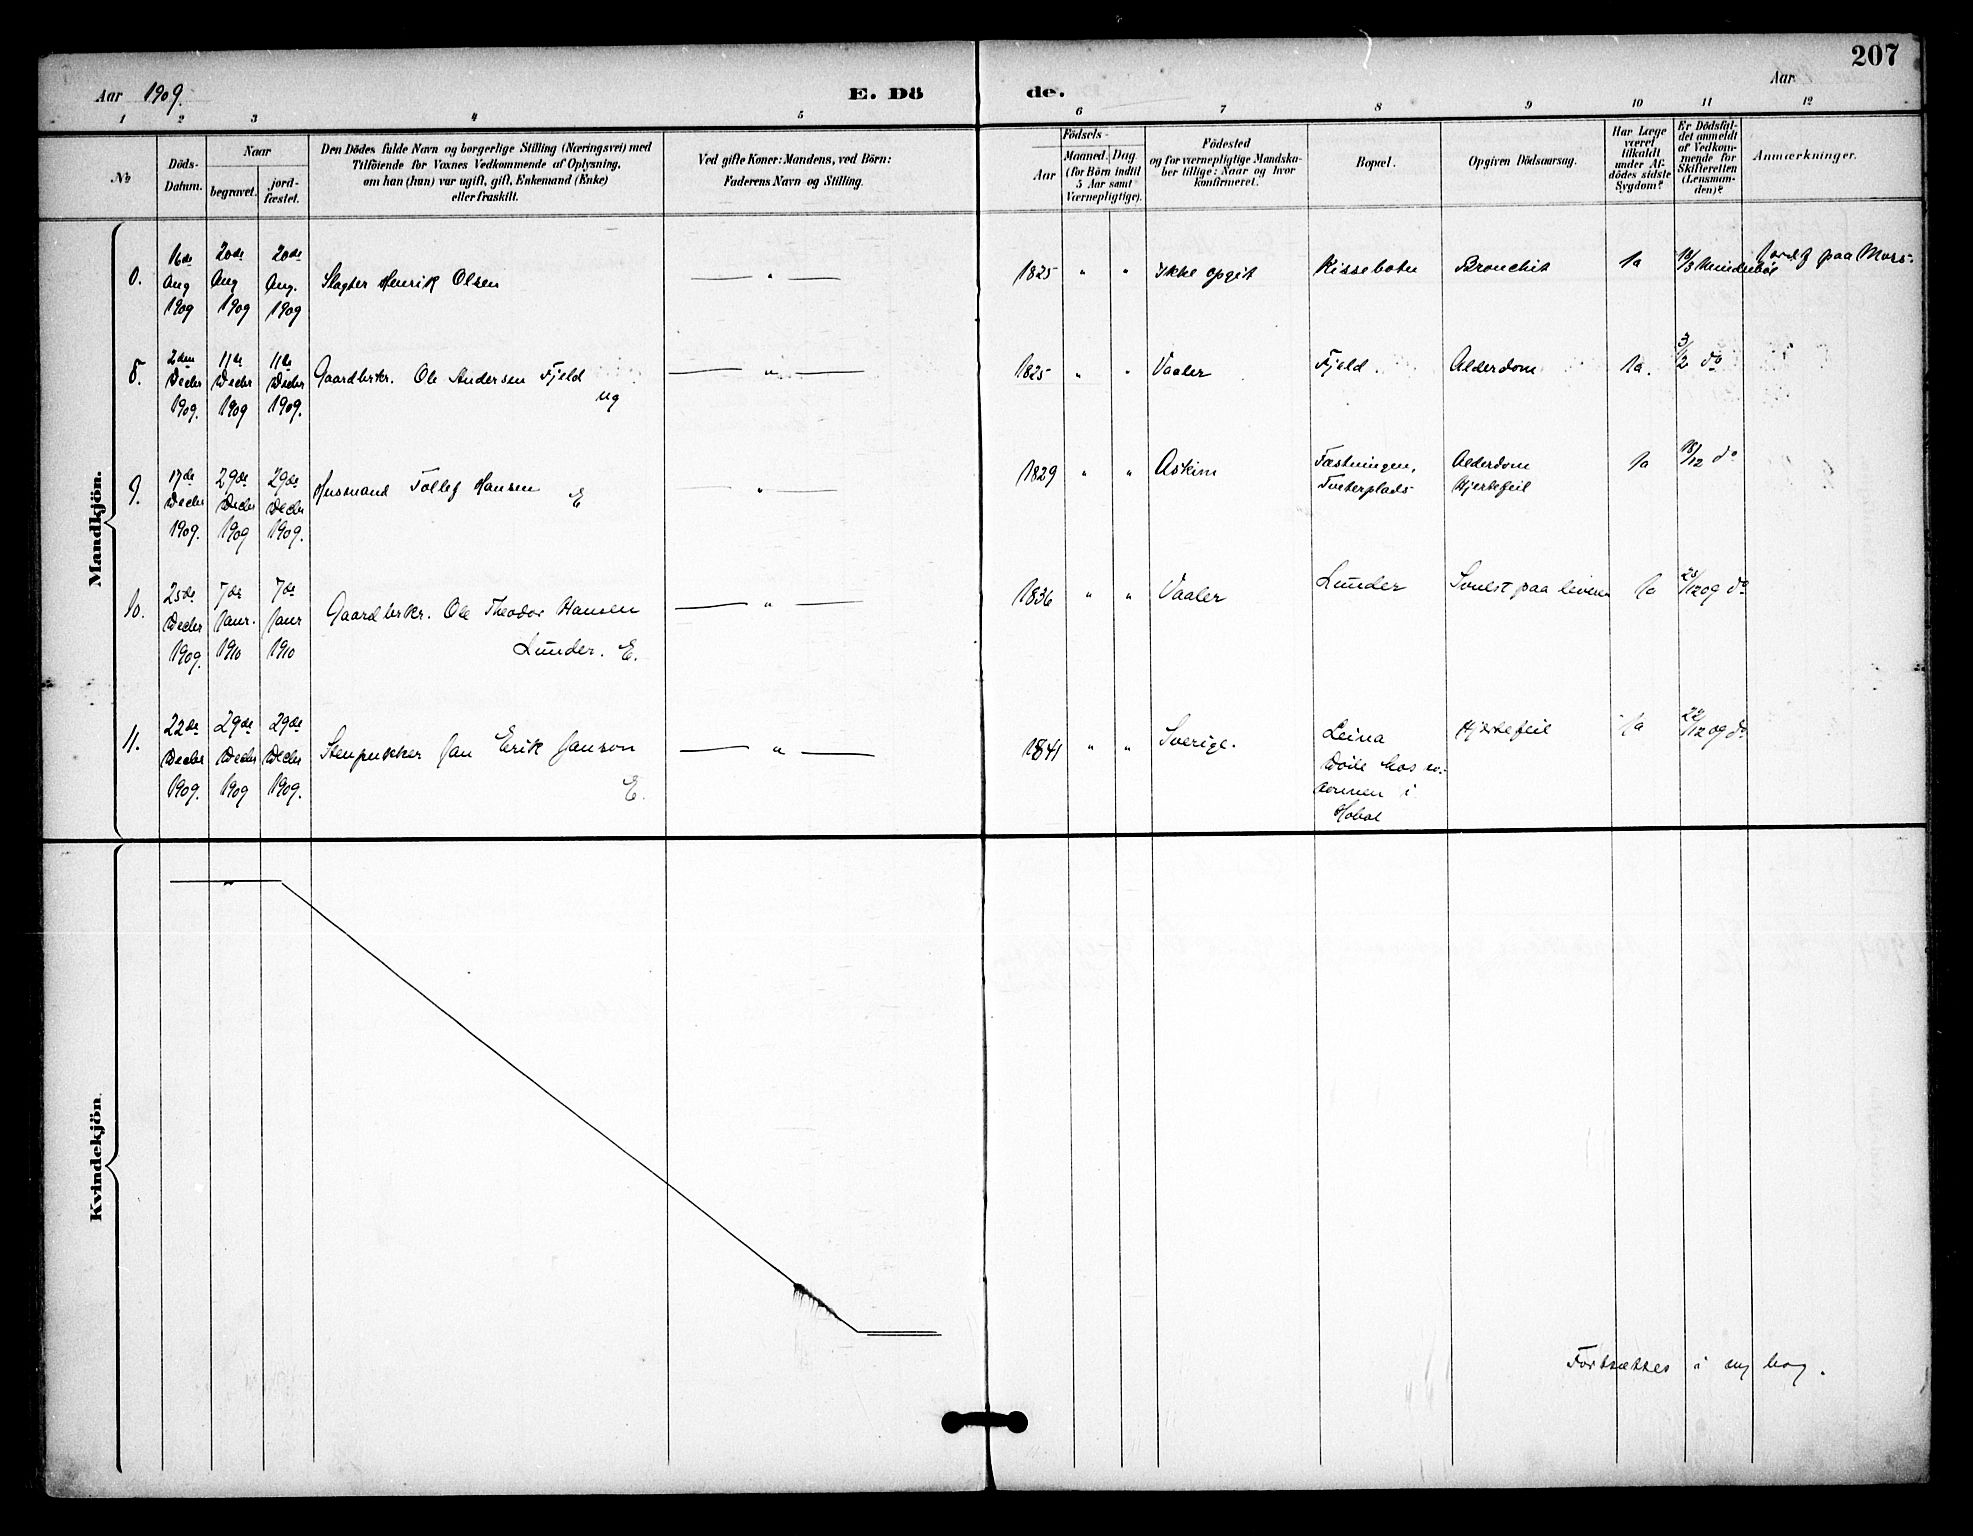 207
Aar 1909.
E. Dö de.
Aar
1 2 3 4 5 6 7 8 9 10 11 12
№
Döds-
Datum.
Naar
begravet.
jord-
fæstet.
Den Dödes fulde Navn og borgerlige Stilling (Næringsvei) med
Tilföiende for Voxnes Vedkommende af Oplysning,
om han (hun) var ugift, gift, Enkemand (Enke)
eller fraskilt.
Ved gifte Koner: Mandens, ved Börn:
Faderens Navn og Stilling.
Födsels-
Aar
Maaned. Dag
(for Börn indtil
5 Aar samt
Værnepligtige).
Födested
og for værnepligtige Mandska-
ber tillige: Naar og hvor
konfirmeret.
Bopæl.
Opgiven Dödsaarsag.
Har Læge
været
tilkaldt
under Af-
dödes sidste
Sygdom?
Er Dödsfal-
det anmeldt
af Vedkom-
mende for
Skifteretten
(Lensman-
den)?
Anmærkninger.
Mandkjön.
16de Aug 1909
20de Aug 1909
20de Aug. 1909
Slagter Henrik Olsen
— " —
1825 " "
Ikke opgit
Kissebotn
Bronchit
Ja
paa Moss.
8.
2den Decbr 1909.
11te Decbr 1909
11te Decbr 1909.
Gaardbrkr. Ole Andersen Fjeld
ug
— " —
1825 " "
Vaaler
Fjeld.
Alderdom
Ja.
3/12 do
9.
17de Decbr 1909.
29de Decbr 1909
29de Decbr 1909.
Husmand Tollef Hansen
E
— " —
1829 " "
Askim
Fæstningen,
Tveterplads
Alderdom
Hjertefeil
Ja
18/12 do
10.
25de Decbr 1909.
7de Janr. 1910
7de Janr 1910
Gaardbrkr. Ole Theodor Hansen
Lunder. E.
— " —
1836 " "
Vaaler
Lunder
Svulst paa leveren
Ja
28/12 09 do
11.
22de Decbr 1909.
29de Decbr 1909
29de Decbr 1909.
Stenpukker Jan Erik Janson
E.
— " —
1841 " "
Sverige.
Leina
Döde hos
i
Hobøl
Hjertefeil
Ja
22/12 09 do
Kvindekjön.
"
Fortsættes i ny bog.